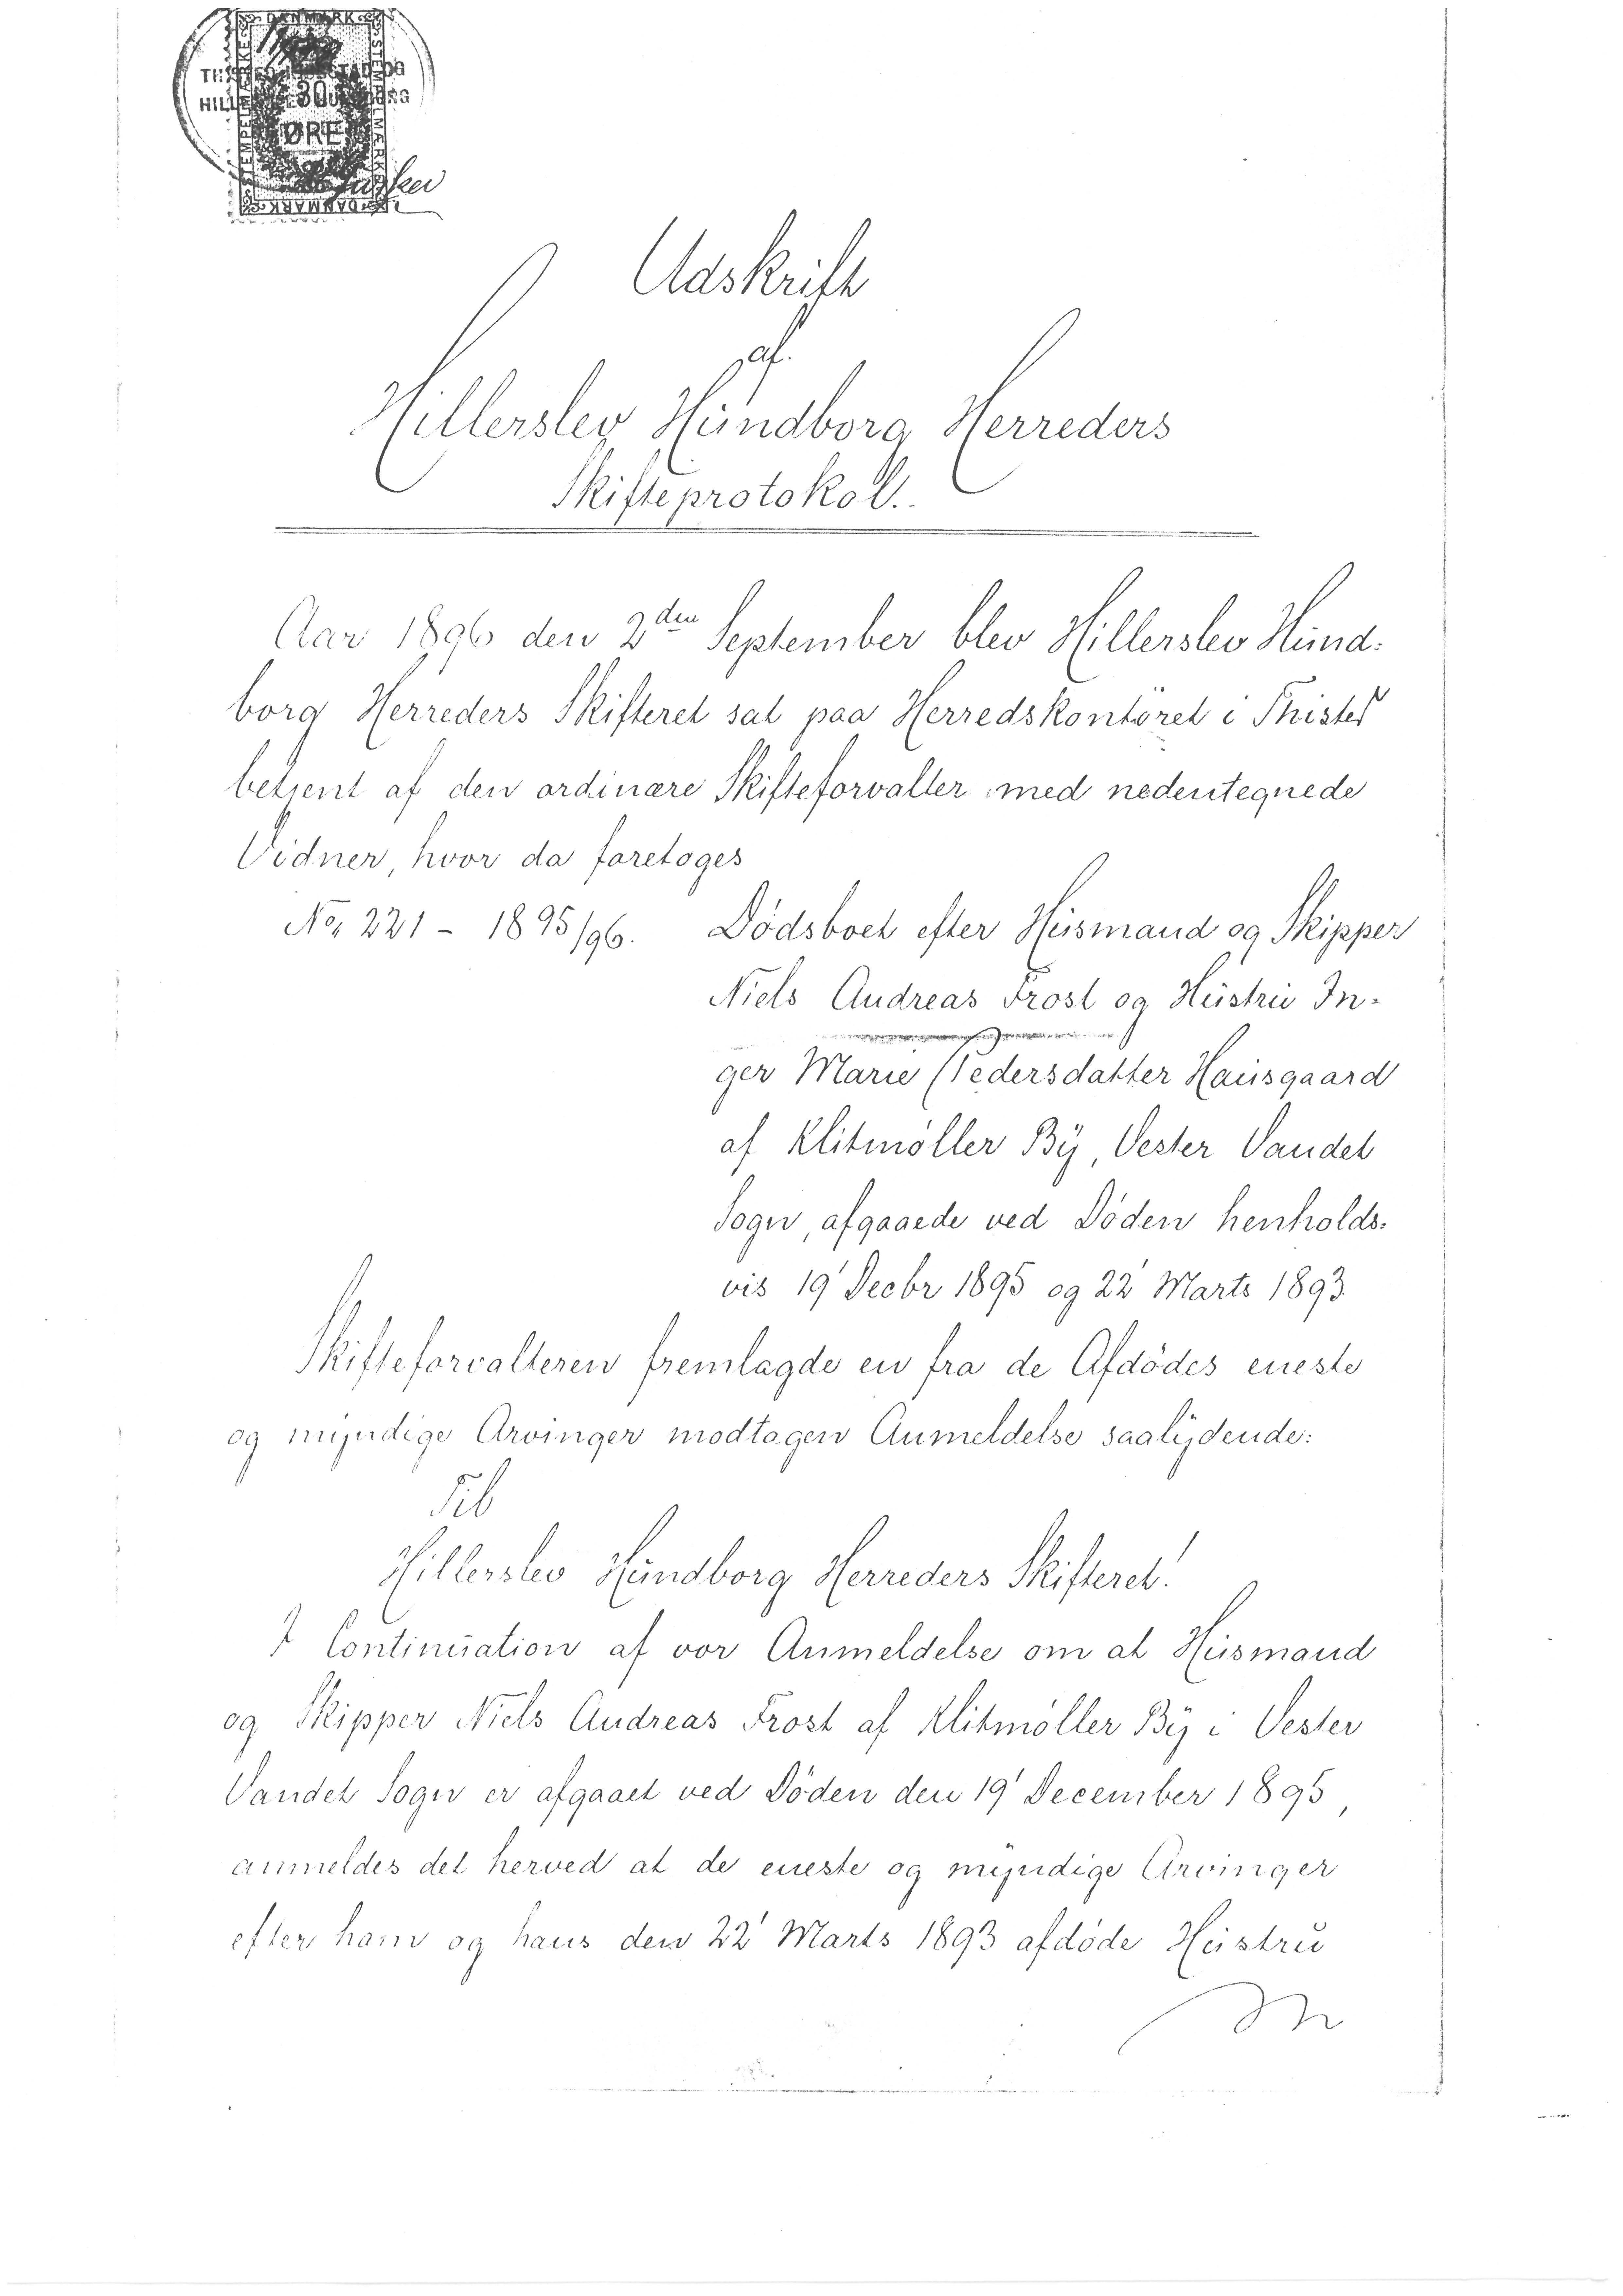 DANMARK
STEMPELMÆRKE
STEMPELMÆRKE
30
ØRE
DANMARK
Udskrift
af
Hillerslev Hundborg Herreders
Skifteprotokol.
Aar 1896 den 2den September blev Hillerslev Hund-
borg Herreders Skifteret sat paa Herredskontoret i Thisted
betjent af den ordinære Skifteforvalter med nedentegnede
Vidner, hvor da foretoges
No, 221 - 1895/96. Dödsboet efter Husmand og Skipper
Niels Andreas Frost og Hustru In-
ger Marie Pedersdatter Hausgaard
af Klitmöller By, Vester Vandet
Sogn, afgaaede ved Döden henholds-
vis 19' Decbr 1895 og 22' Marts 1893
Skifteforvalteren fremlagde en fra de Afdödes eneste
og myndige Arvinger modtagen Anmeldelse saalydende:
Til
Hillerslev Hundborg Herreders Skifteret!
I Continuation af vor Anmeldelse om at Husmand
og Skipper Niels Andreas Frost af Klitmöller By i Vester
Vandet Sogn er afgaaet ved Döden den 19' December 1895,
anmeldes det herved at de eneste og myndige Arvinger
efter ham og hans den 22' Marts 1893 afdöde Hustru
In